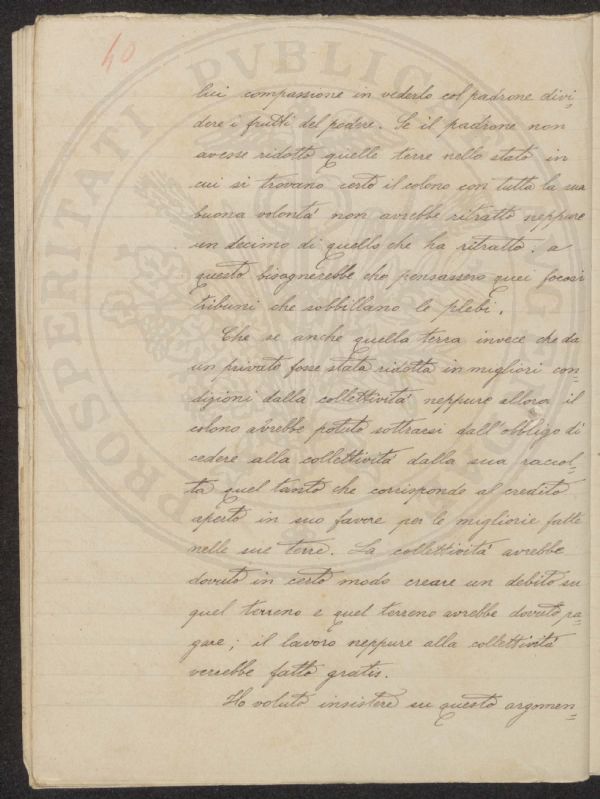 40
lui compassione in vederlo col padrone divi=
dere i frutti del podere. Se il padrone non
avesse ridotto quelle terre nello stato in
cui si trovano certo il colono con tutta la sua
buona volontà non avrebbe ritratto neppure
un decimo di quello che ha ritratto. a
questo bisognerebbe che pensassero quei focosi
tribuni che sobbillano le plebi.
Che se anche quella terra invece che da
un privato fosse stata ridotta in migliori con=
dizioni dalla collettività neppure allora il
colono avrebbe potuto sottrarsi dall'obbligo di
cedere alla collettività dalla sua raccol=
ta quel tanto che corrisponde al credito
aperto in suo favore per le migliorie fatte
nelle sue terre. La collettività avrebbe
dovuto in certo modo creare un debito su
quel terreno e quel terreno avrebbe dovuto pa=
gare; il lavoro neppure alla collettività
verrebbe fatto gratis.
Ho voluto insistere su questo argomen=
PROSPERITATI PVBLICAE